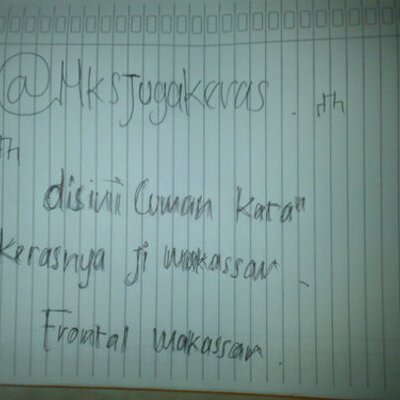 @Mksjugakeras. th
th
disini Cuman kata"
kerasnya ji makassar.
Frontal makassar.